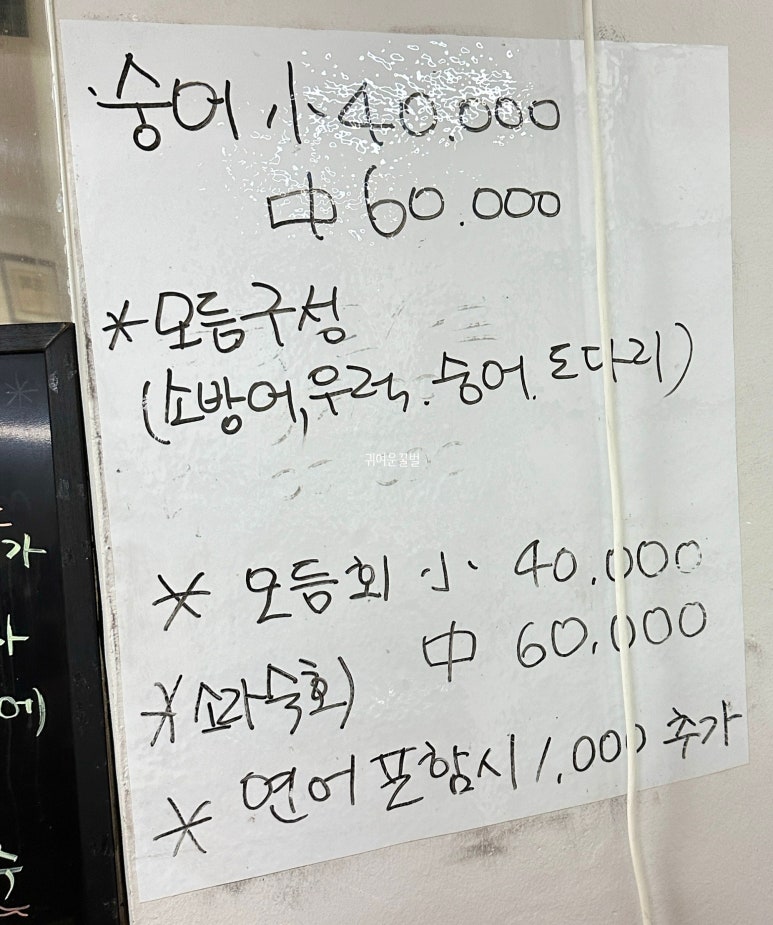 숭어 小 40.000
中 60.000
*모듬구성
(소방어, 우럭. 숭어. 도다리)
귀여운꿀벌
* 모듬회 小 40.000
中 60.000
*소라숙회)
* 연어 포함시 1,000 추가
가
에)